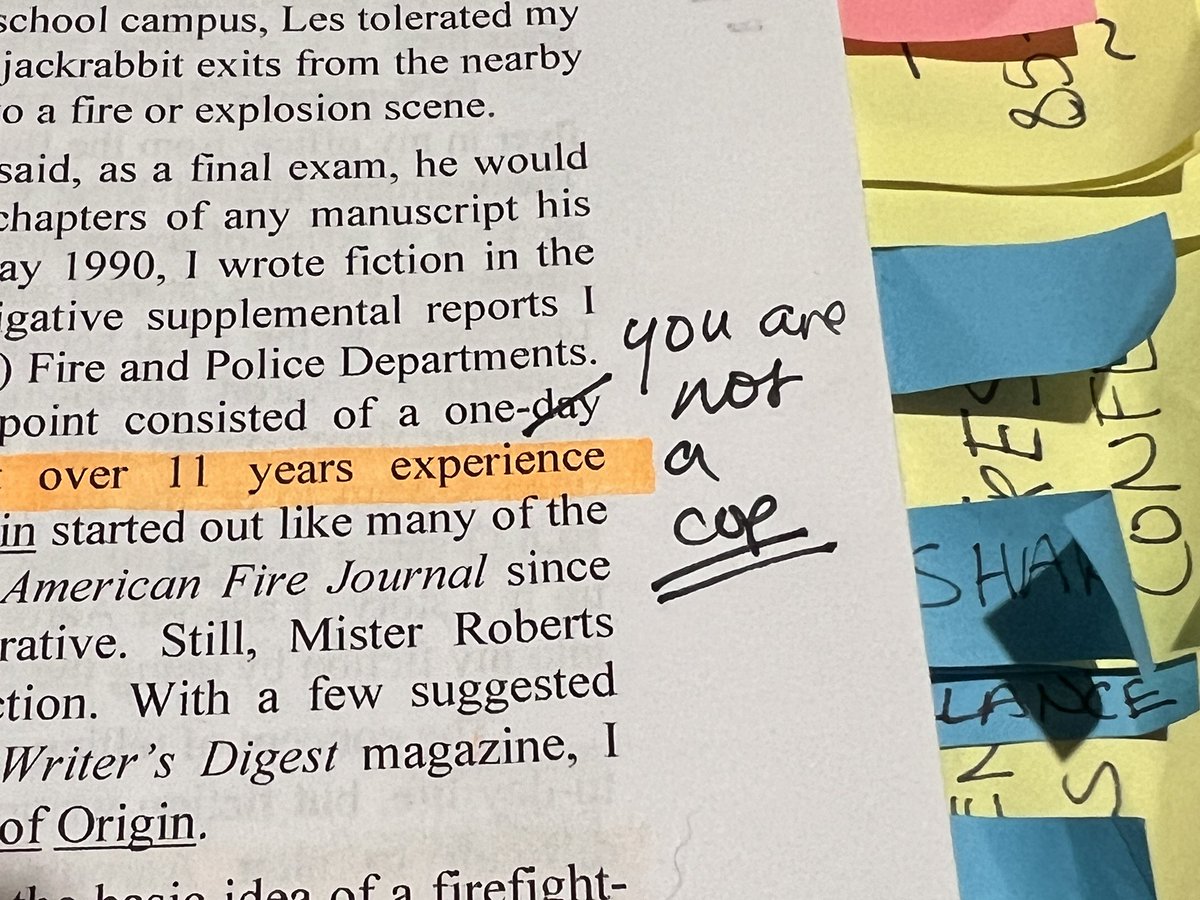 school campus, Les tolerated my
jackrabbit exits from the nearby
o a fire or explosion scene.
said, as a final exam, he would
chapters of any manuscript his
ay 1990, I wrote fiction in the
igative supplemental reports I
) Fire and Police Departments.
point consisted of a one-day
over 11 years experience
in started out like many of the
American Fire Journal since
rative. Still, Mister Roberts
ction. With a few suggested
Writer's Digest magazine, I
of Origin.
the basic idea of a firefight-
you are
not
a
cop
85-
RES
CONFL
SHA
LANCE